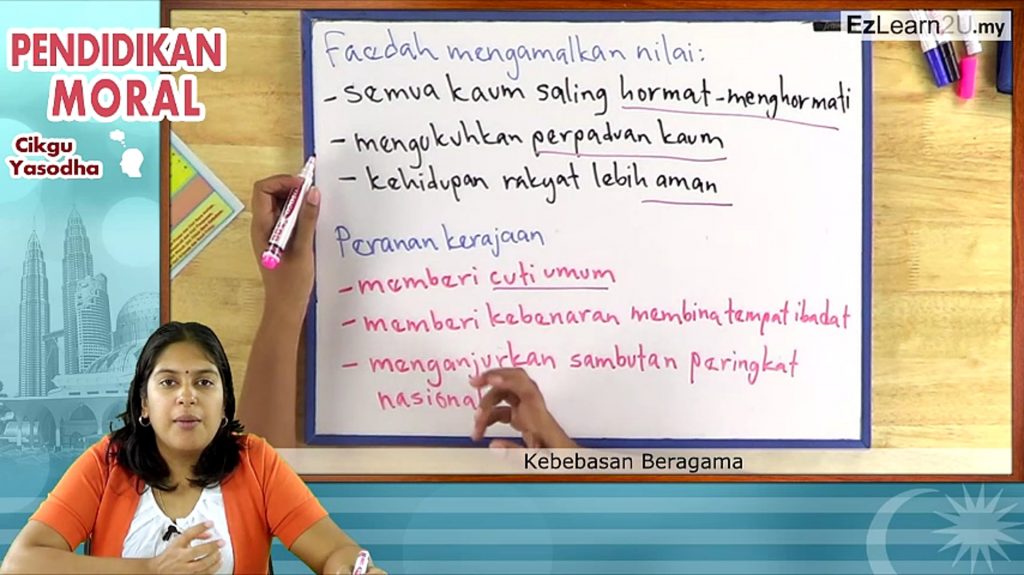 PENDIDIKAN
MORAL
Cikgu
Yasodha
EzLearn2U.my
Faedah mengamalkan nilai:
- semua kaum saling hormat-menghormati
- mengukuhkan perpaduan kaum
- kehidupan rakyat lebih aman
Peranan kerajaan
- memberi cuti umum
- memberi kebenaran membina tempat ibadat
- menganjurkan sambutan peringkat
nasional
Kebebasan Beragama